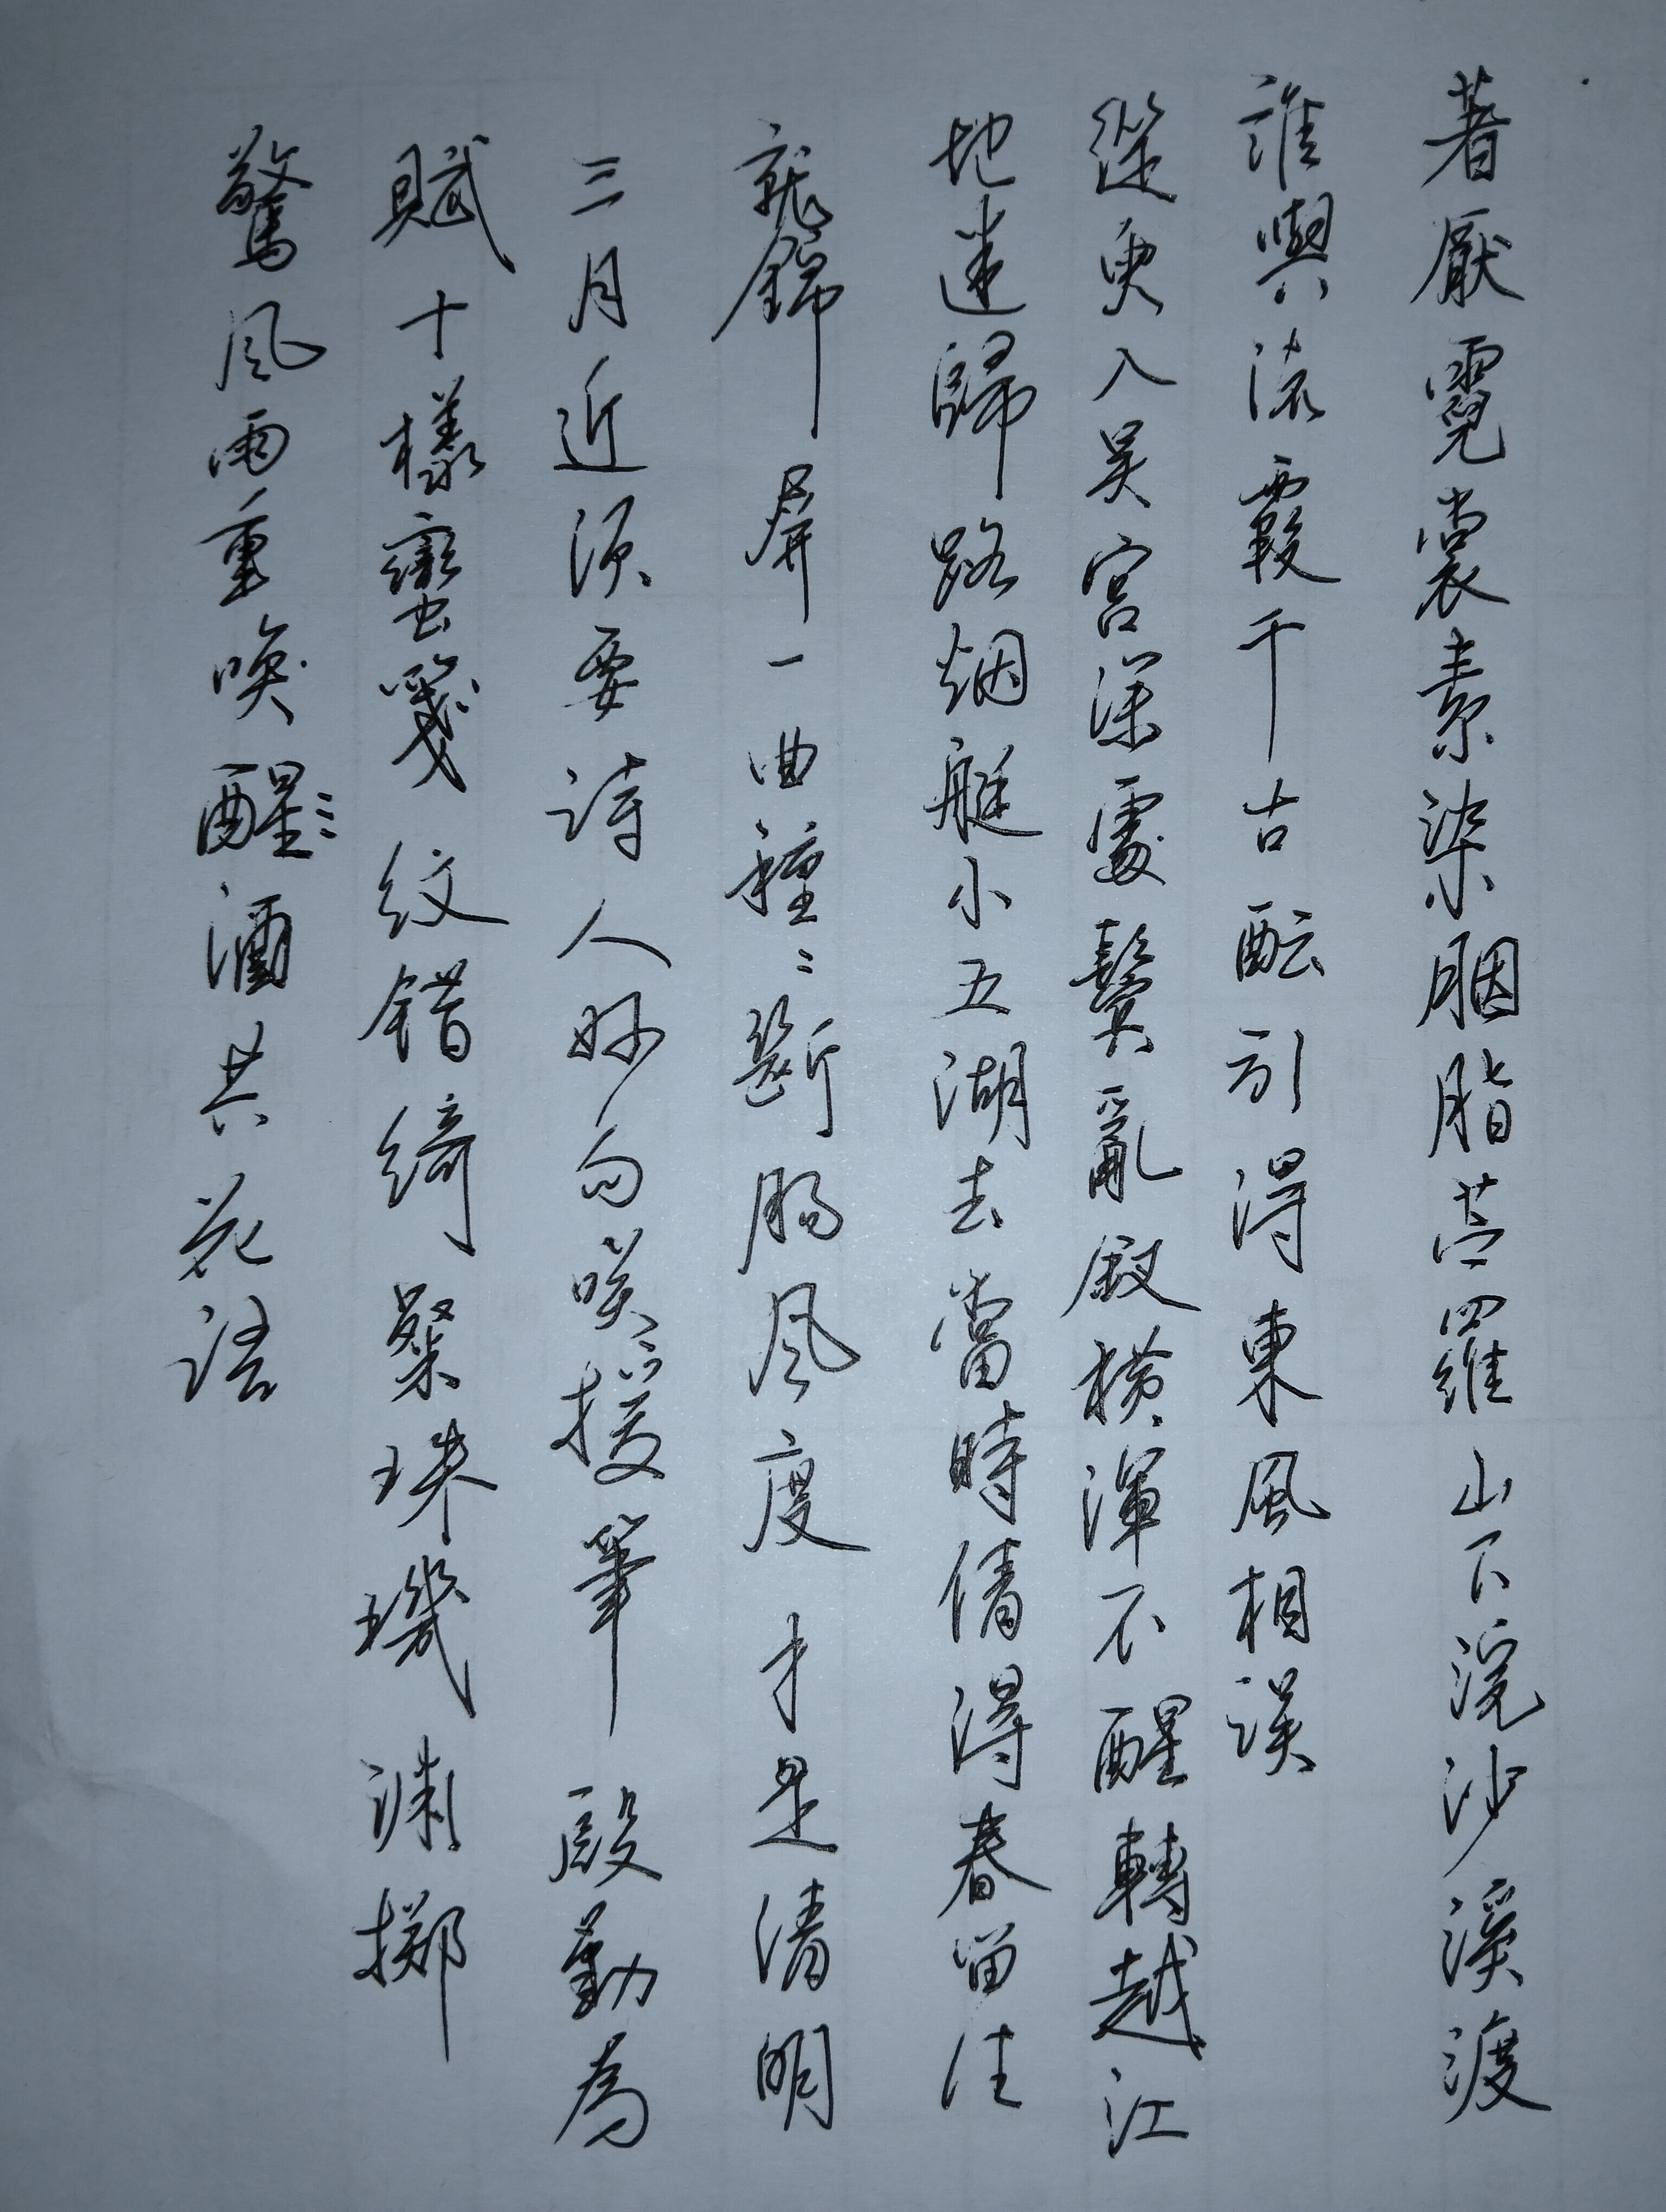 著厭霓裳素染胭脂苎羅山下浣沙溪渡
誰與流霞千古醖引得東風相誤
從臾入吳宮深處鬢亂釵橫渾不醒轉越江
地迷歸路烟艇小五湖去當時倩得春留住
就錦屏一曲種〻斷腸風度才是清明
三月近須要詩人妙句咲援筆殷勤為
賦十樣蠻箋紋錯綺粲珠璣渊掷
驚風雨重喚醒酒共花語